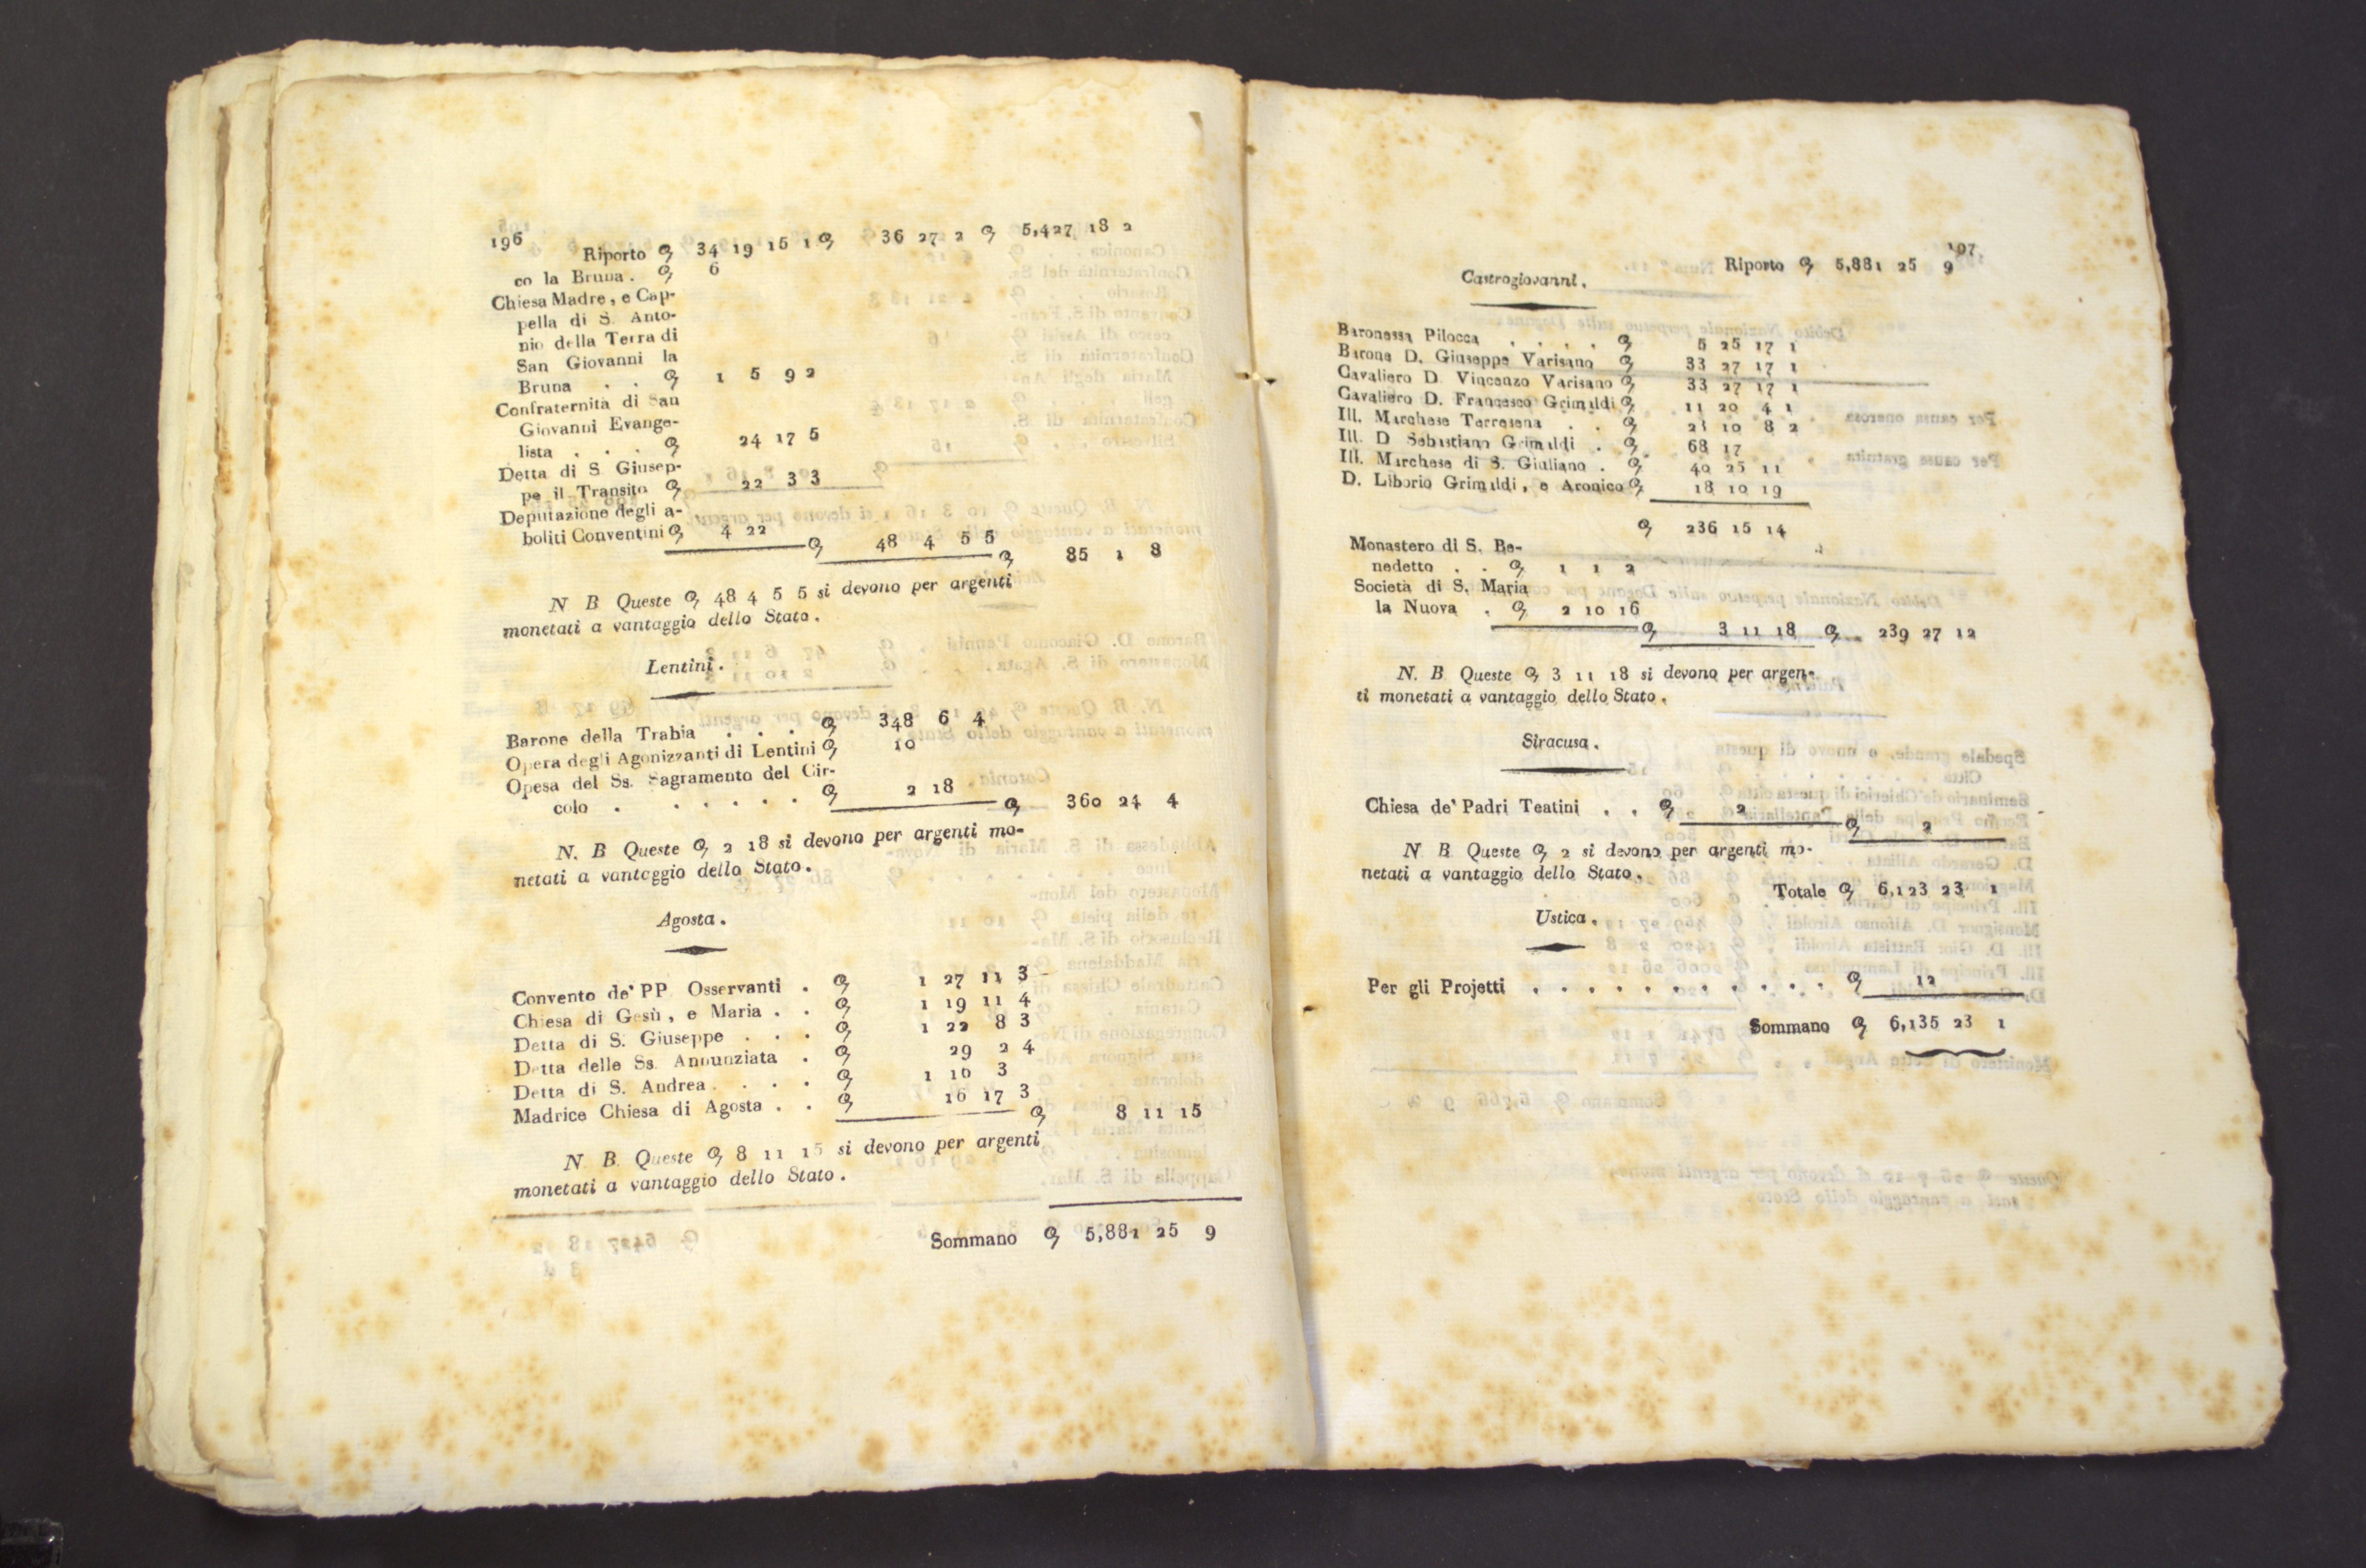 196
Riporto 34 19 15 1 36 27 2 5,427 18 2
co la Bruna . 6
Chiesa Madre , e Cap-
pella di S. Anto-
nio della Terra di
San Giovanni la
Bruna . . 1 5 9 2
Confraternità di San
Giovanni Evange-
lista . . . 24 17 5
Detta di S. Giusep-
pe il Transito 22 3 3
Deputazione degli a-
boliti Conventini 4 22
48 4 5 5
85 1 8
N. B. Queste 48 4 5 5 si devono per argenti
monetati a vantaggio dello Stato .
Lentini .
Barone della Trabia . . . 348 6 4
Opera degli Agonizzanti di Lentini 10
Opesa del Ss. Sagramento del Cir-
colo . . . . . . 2 18
360 24 4
N. B. Queste 2 18 si devono per argenti mo-
netati a vantaggio dello Stato .
Agosta .
Convento de' PP. Osservanti . 1 27 11 3
Chiesa di Gesù , e Maria . . 1 19 11 4
Detta di S. Giuseppe . . . 1 22 8 3
Detta delle Ss. Annunziata . 29 2 4
Detta di S. Andrea . . . . 1 16 3
Madrice Chiesa di Agosta . . 16 17 3
8 11 15
N. B. Queste 8 11 15 si devono per argenti
monetati a vantaggio dello Stato .
Sommano 5,881 25 9
197
Riporto 5,881 25 9
Castrogiovanni .
Baronessa Pilocca . . . . 5 25 17 1
Barone D. Giuseppe Varisano 33 27 17 1
Cavaliero D. Vincenzo Varisano 33 27 17 1
Cavaliero D. Francesco Grimaldi 11 20 4 1
Ill. Marchese Terresena . . 23 10 8 2
Ill. D. Sebastiano Grimaldi . 68 17
Ill. Marchese di S. Giuliano . 40 25 11
D. Liborio Grimaldi , e Aronica 18 10 19
236 15 14
Monastero di S. Be-
nedetto . . 1 1 2
Società di S. Maria
la Nuova . 2 10 16
3 11 18 239 27 12
N. B. Queste 3 11 18 si devono per argen-
ti monetati a vantaggio dello Stato .
Siracusa .
Chiesa de' Padri Teatini . . 2
2
N. B. Queste 2 si devono per argenti mo-
netati a vantaggio dello Stato .
Totale 6,123 23 1
Ustica .
Per gli Projetti . . . . . . . . . . . 12
Sommano 6,135 23 1